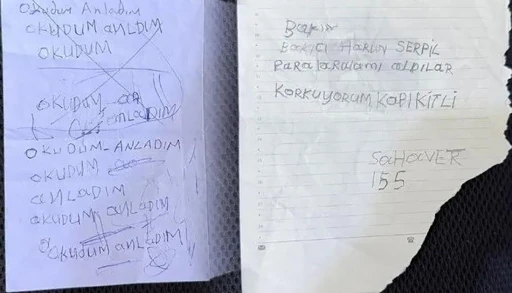 Okudum Anladım
OKUDUM ANLDIM
OKUDUM
OKUDUM
ANLADIM
OKUDUM-ANLADIM
OKUDUM
aNLADIM
OKUDUM aNLADIM
OKUDUM aNLADIM
Bakın
BaKICI HaRUN SERPİL
PaRaLaRıMI aLDILAR
KORKUYORUM KaPI KİTLİ
SaHaVER
155